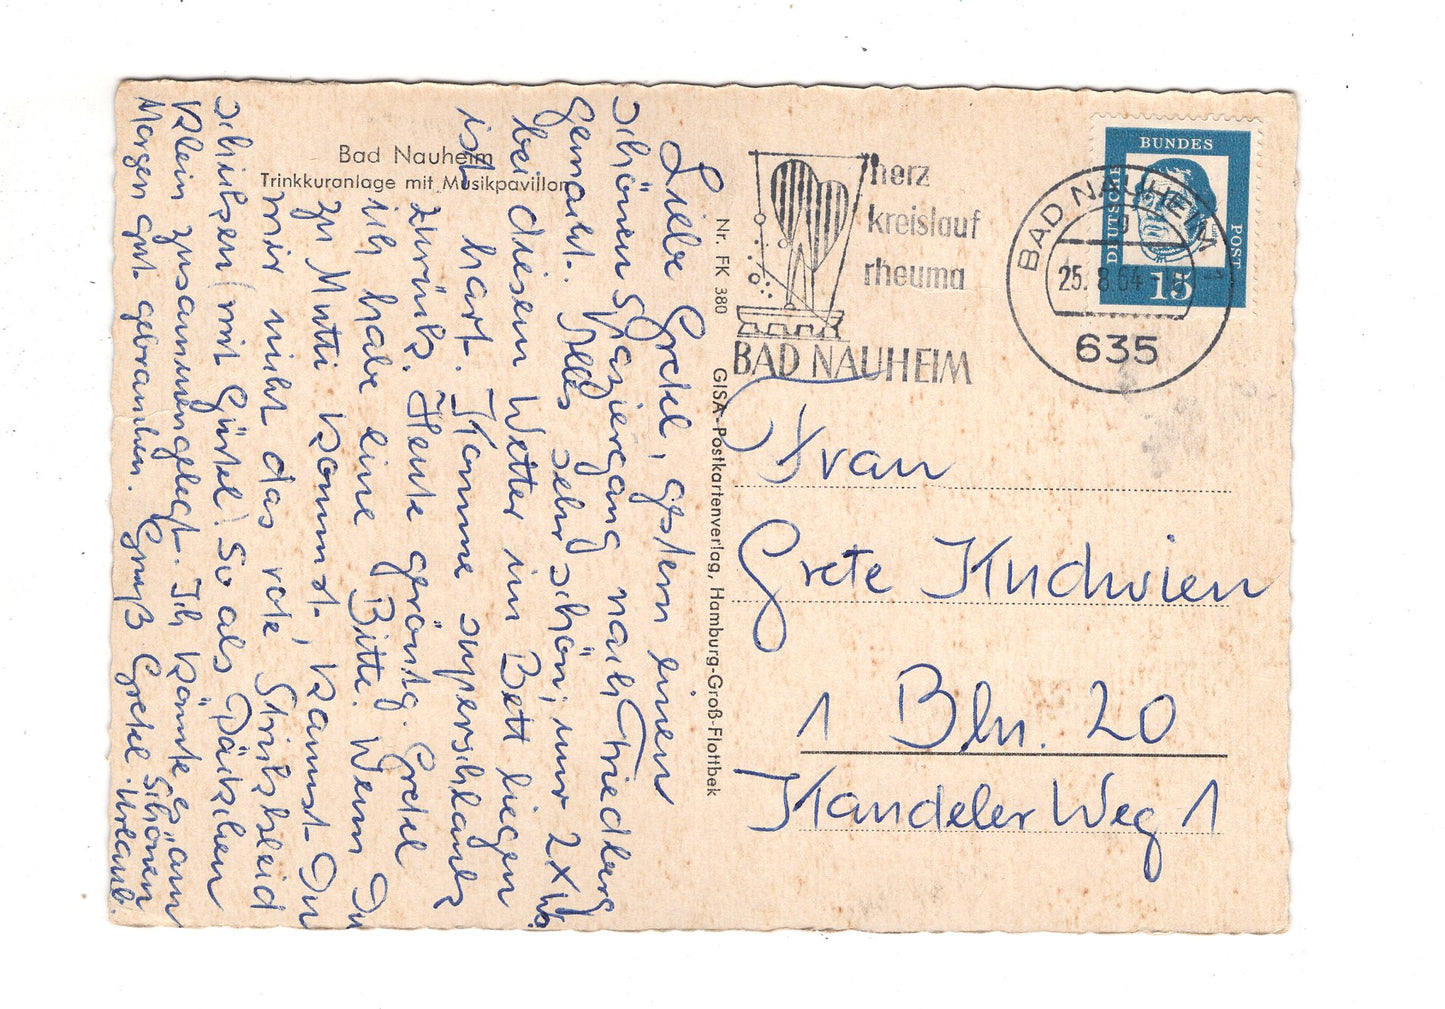 Bad Nauheim
Trinkkuranlage mit Musikpavillon
Liebe Gretel, gestern einen
schönen Spaziergang nach Friedberg
gemacht. Alles sehr schön, nur 2 x
bei diesem Wetter im Bett liegen
ist hart. Komme superschlank
zurück. Heute geröntg. Gretel
ich habe eine Bitte. Wenn Du
zu Mutti kommst, kannst Du
mir nicht das rote Strickkleid
schicken (mit Gürtel) So als Päckchen
klein zusammengelegt. Ich könnte es am
Morgen gut gebrauchen. Gruß Gretel. Schönen
Urlaub.
Nr. FK 380 GISA-Postkartenverlag, Hamburg-Groß-Flottbek
herz
kreislauf
rheuma
BAD NAUHEIM
BAD NAUHEIM
g
25. 8. 64
635
DEUTSCHE
BUNDES
POST
15
Frau
Grete Kudwien
1 Bln. 20
Kandeler Weg 1